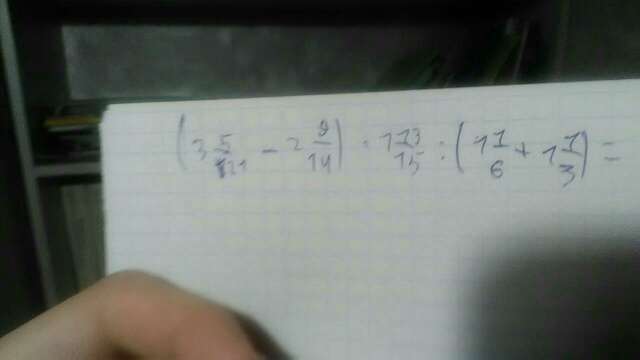 (3 5/21 - 2 9/14) · 1 13/15 : (1 1/6 + 1 1/3) =